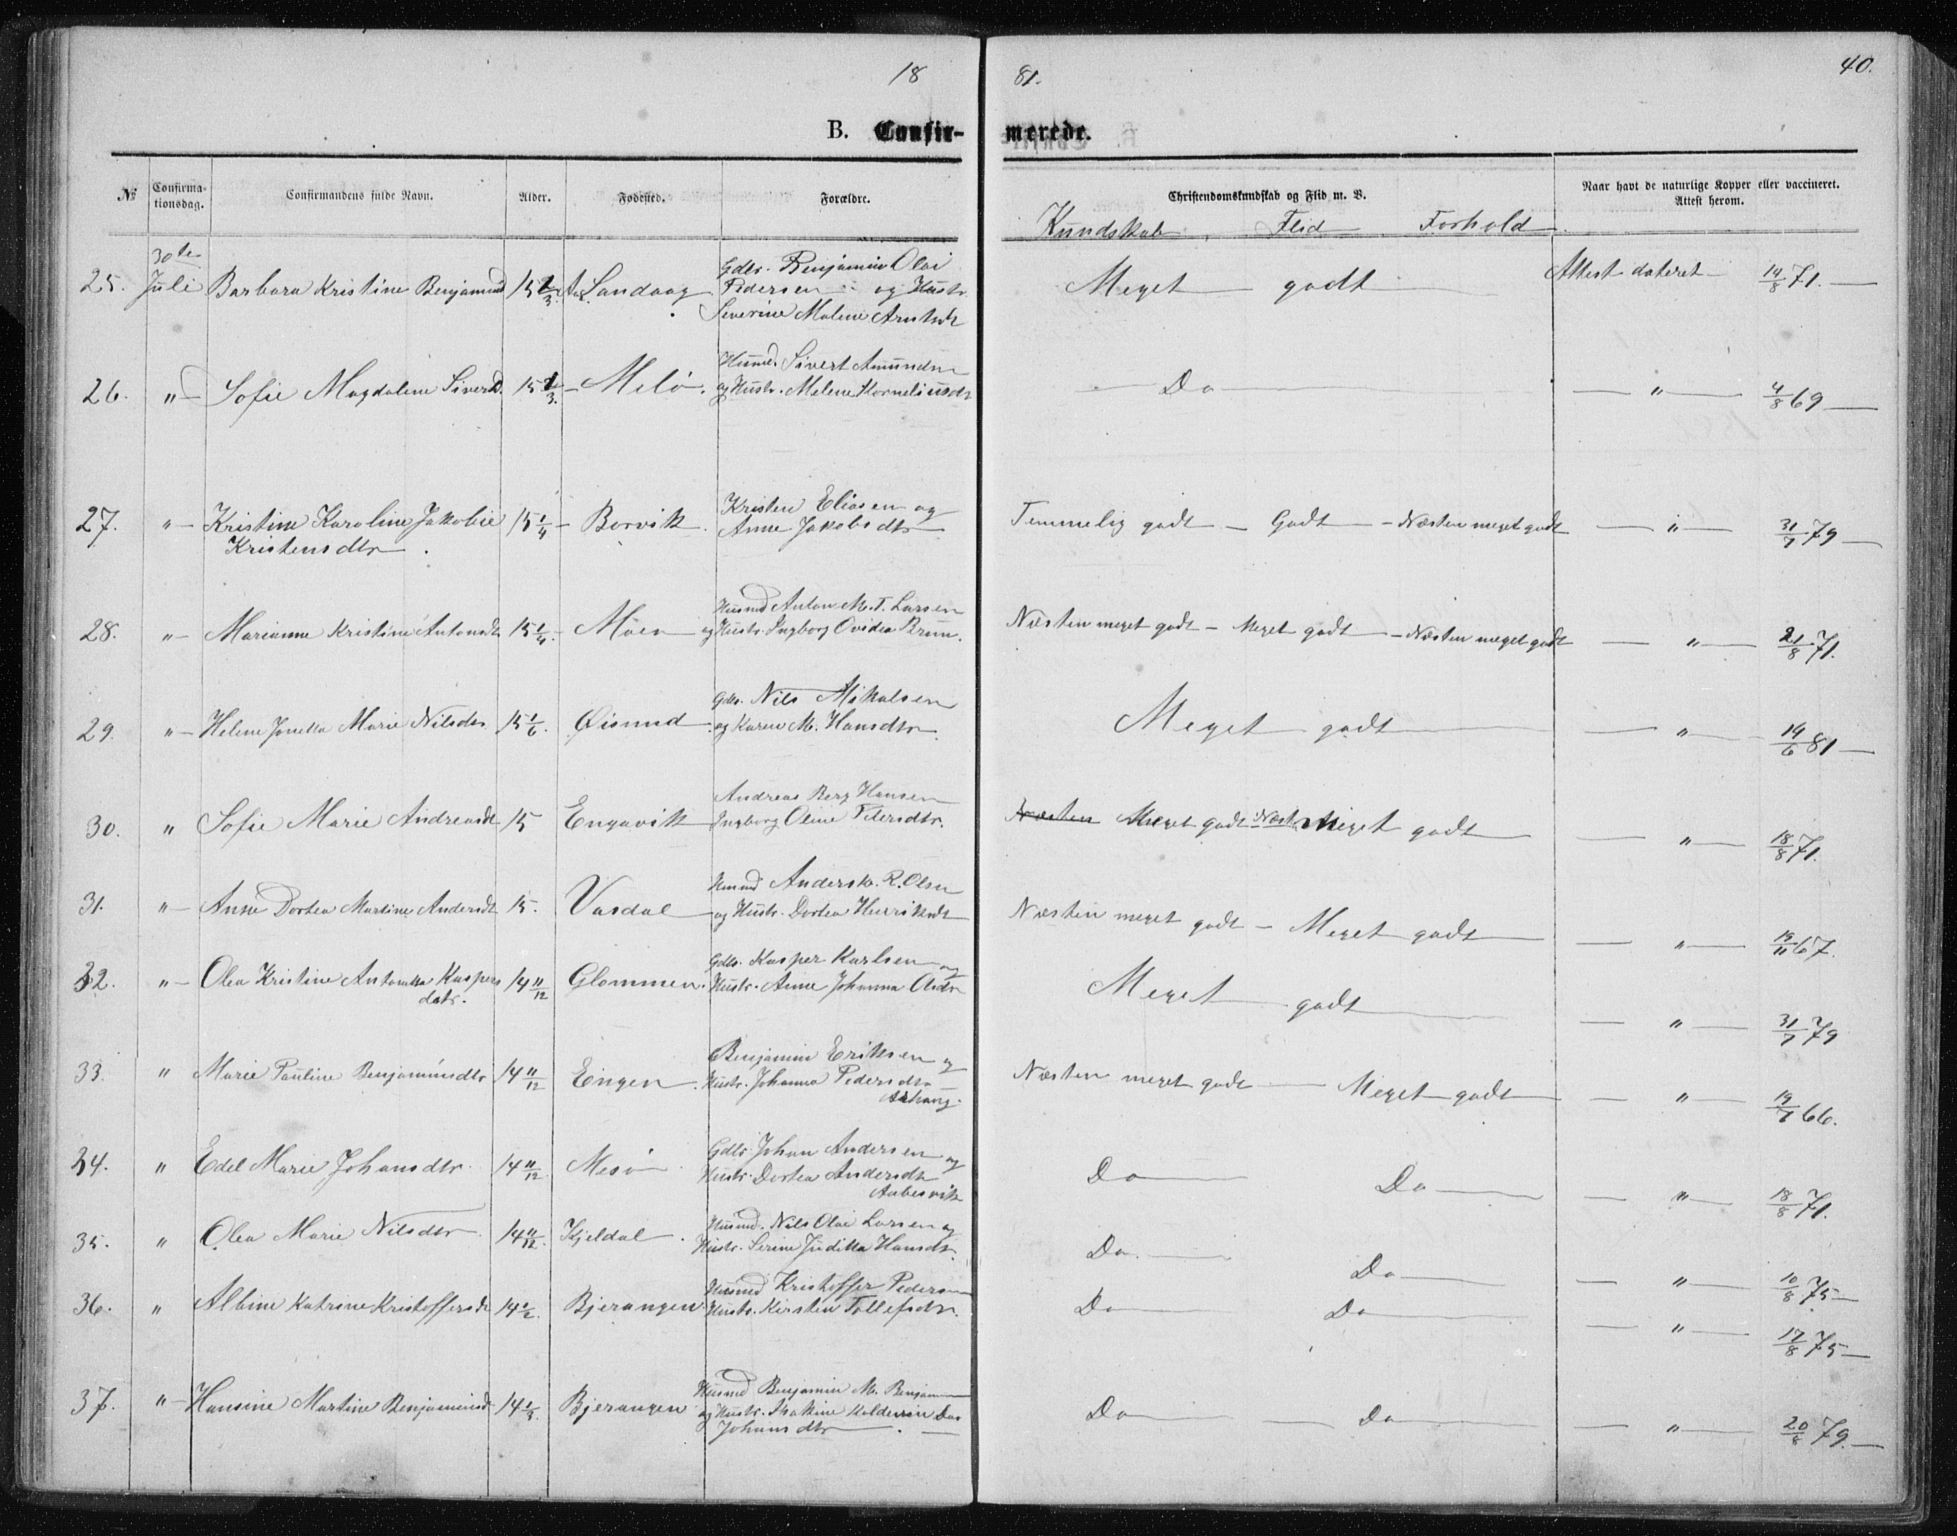 18 81. 40.
B. Confir- merede.
№ Confirma-tionsdag. Confirmandens fulde Navn. Alder. Fødested. Forældre. Christendomskundskab og Flid m. V. Naar havt de naturlige Kopper eller vaccineret. Attest herom.
Kundskab Flid Forhold
30te
25. Juli Barbara Kristine Benjaminsd 15 Sandaag Gdbr. Benjamin Olai Pedersen og Hustr. Severine Malene Arntsdt Meget godt Attest dateret 14/8 71.
26. " Sofie Magdalene Sivertsd. 15 1/3 Melø. Husmd. Sivert Amundsn og Hustr. Melene Korneliusdr Do " 4/8 69
27. " Kristine Karoline Jakobie Kristensdtr. 15 1/4 Borvik Kristen Eliasen og Anne Jakobsdtr Temmelig godt - Godt - Næsten meget godt " 31/7 79
28. " Marianne Kristine Antonsdt 15 1/4 Moen Husmd Anton M. T. Larsen og Hustr. Ingborg Ovidea Brun. Næsten meget godt - Meget godt - Næsten meget godt " 21/8 71.
29. " Helene Jonetta Marie Nilsdtr 15 1/6. Øisund Gdbr. Nils Mikalsen og Karen M. Hansdtr. Meget godt " 14/6 81
30. " Sofie Marie Andreasdt 15 Engavik Andreas Berg Hansen Ingborg Oline Petersdtr. Næsten Meget godt Næst Meget godt " 18/8 71.
31. " Anne Dortea Martine Andersdt 15. Vasdal Husmd Anders R. Olsen og Hustr. Dortea Henriksdt Næsten meget godt - Meget godt " 19/11 67.
32. " Olea Kristine Antonetta Kaspers datr. 14 11/12 Glommen. Gdbr. Kasper Karlsen og Hustr. Anne Johanna Olsdr Meget godt " 31/7 79
33. " Marie Pauline Benjaminsdtr 14 11/12 Eingen. Benjamin Eriksen og Hustr. Johanna Pedersdtr Næsten meget godt Meget godt " 19/7 66.
34. " Edel Marie Johansdtr. 14 11/12 Mesø Gdbr Johan Andersen og Hustr. Dortea Andersdtr Do Do " 18/8 71.
35. " Olea Marie Nilsdtr 14 11/12. Kjeldal. Husmd. Nils Olai Larsen og Hustr. Serine Juditta Hansdt. Do. Do " 10/8 75
36. " Albine Katrine Kristoffersdt 14 1/2. Bjerangen Husmd Kristoffer Pedersen Hustr. Kirsten Tollefsdtr. Do Do " 17/8 75
37. " Hansine Martine Benjaminsd 14 1/3. Bjerangen Husmd Benjamin M. Benjamin og Hustr. Johansdtr. Do Do " 20/8 79.